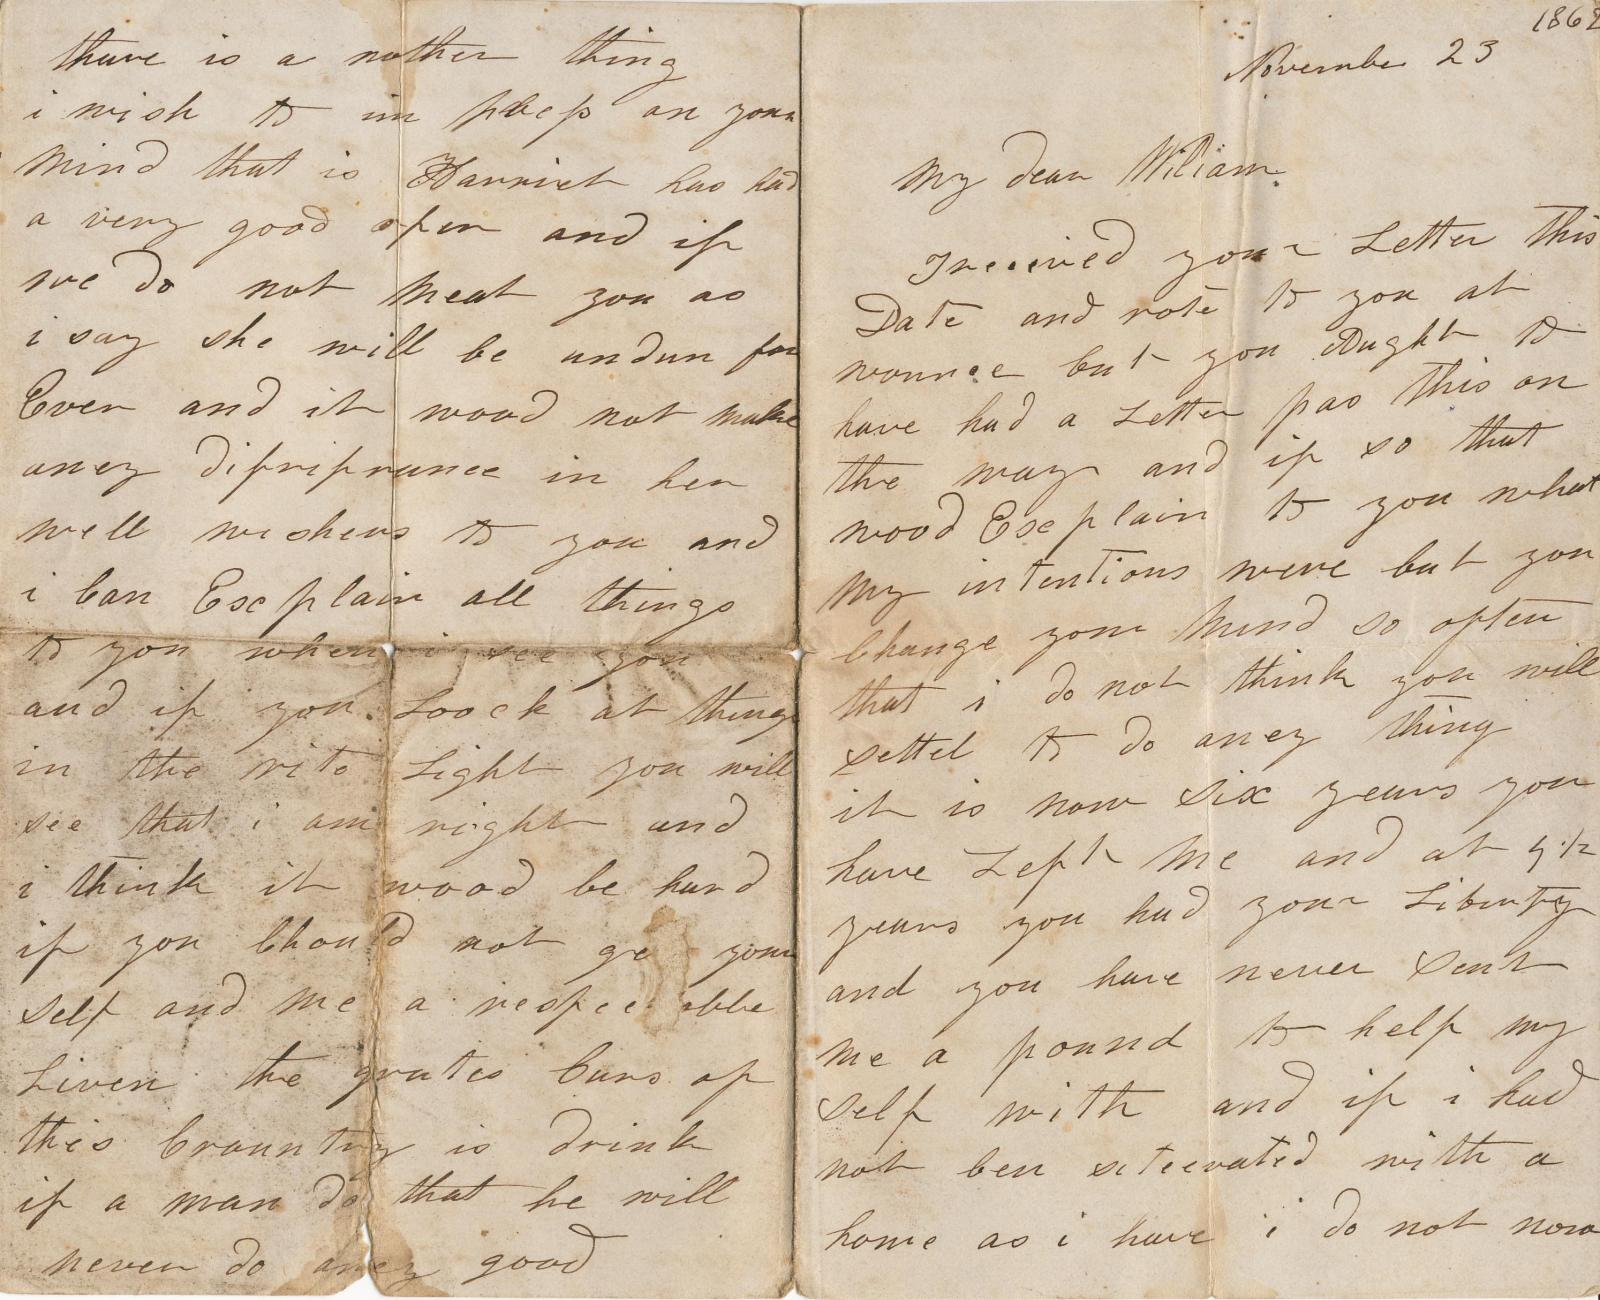 1862
November 23
My dear Wiliam
I received your Letter this
Date and rote to you at
wonnce but you Ought to
have had a Letter pas this on
the way and if so that
wood Escplain to you what
My intentions were but you
Change your Mind so often
that i do not think you will
settel to do aney thing
it is now six years you
have Left Me and at 4½
years you had your Liberty
and you have never sent
Me a pound to help my
Self with and if i had
not ben siteevated with a
home as i have i do not now
thare is a nother thing
i wish to im on your
Mind that is Harriet has had
a very good ofer and if
we do not Meat you as
i say she will be undun for
Ever and it wood not make
aney difrifrance in her
well wishers to you and
i Can Escplain all things
to you when i see you
and if you Loock at things
in the rite Light you will
see that i am right and
i think it wood be hard
if you Chould not ge your
Self and Me a
Liven the grates Curs of
this Crountry is drink
if a man do that he will
never do aney good